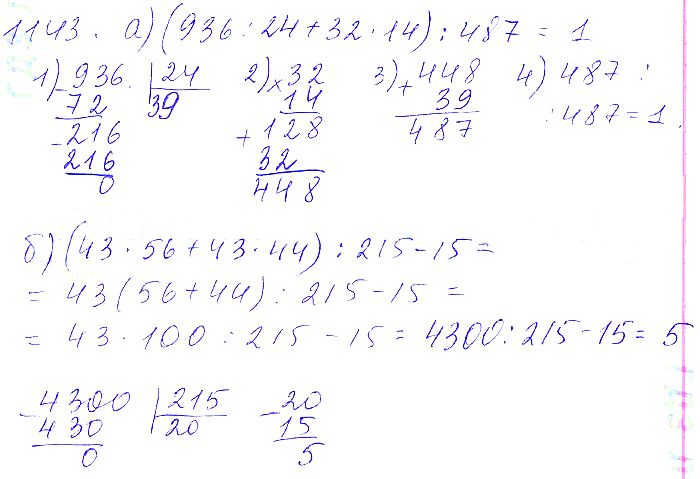 1143. а) (936 : 24 + 32 · 14) : 487 = 1
1) 936 24 2) × 32 3) + 448 4) 487 :
72 39 14 39 : 487 = 1.
- 216 + 128 487
216 32
0 448
б) (43 · 56 + 43 · 44) : 215 - 15 =
= 43 (56 + 44) : 215 - 15 =
= 43 · 100 : 215 - 15 = 4300 : 215 - 15 = 5
- 4300 215 - 20
430 20 15
0 5